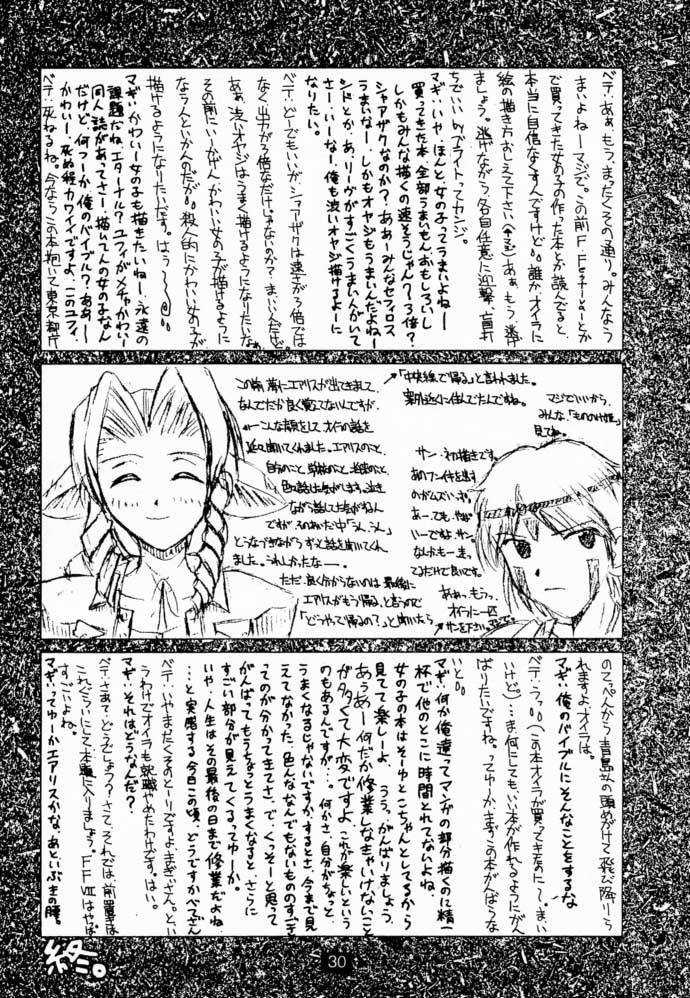 ベテ：あぁ、もう、まったくその通り。みんなう
まいよねーマジで。この前FF
で買ってきた女の子の作った本とか読んでると、
本当に自信なくすんですけど誰か、オイラに
絵の描き方おしえて下さいあぁ、もう、
ましょう。逃げながら各自任意に迎撃、
ちでいいよブライトってカンジ。
マギ：いや、ほんと、女の子ってうまいよねー
買ってきた本、全部うまいもん、おもしろいし
しかもみんな描くの速そうじゃん？3倍？
シャアザクなのか？ああーみんなセフィロス、
うまいなー、しかもオヤジもうまいんだよねー
シドとか。あ、リーヴがすごくうまい人がいて
さー…いーなー、俺も渋いオヤジ描けるよーに
なりたい。
ベテ：どーでもいいが、シャアザクは速さが3倍では
なく、出力が3倍なだけじゃないのか？まぁいいんだけど。
あぁ、渋いオヤジはうまく描けるようになりたいなぁ
その前にいーかげん、かわいい女の子が描けるように
ならんといかんのだが殺人的にかわいい女の子が
描けるようになりたいです。はぅ〜
マギ：かわいー女の子も描きたいねー、永遠の
課題だね。エターナル？ユフィがメチャかわいー
同人誌があってさー、描いてんの女の子なん
だけど、何つーか俺のバイブル？ああー
かわいー、死ぬ程カワイイですよ、このユフィ。
ベテ：死ねるね。今ならこの本抱いて東京都庁
この前、夢にエアリスが出てきまして、
なんでだか良く覚えてないんですが、
こんな顔をしてオイラの話を
近くで聞いてくれました。エアリスのこと、
自分のこと、学校のこと、
色々話した気がします。泣き
ながら話してた気がすんねん
ですが、そのあいだ中「うん、うん」
とうなづきながらずっと話を聞いてくれ
ました。うれしかったなー。
ただ、良く分からないのは最後に
エアリスが「もう帰る」と言うので
「どうやって帰るの？」と聞いたら
「中央線で帰る」と言われました。
案外近くに住んでたんですね。
マジでいいから、
みんな、「もののけ姫」
見てね。
サン、初描きです。
あのフンイキを出す
のがムズいっす。
あー、でも、やぱ
いーですね、サン。
なんかもー、
てるだけで良いです。
あぁ、もうっ、
オイラに一匹
サンを下さい。
のてっぺんから青島女の頭めがけて飛び降りら
れますよ、オイラは。
マギ：俺のバイブルにそんなことをするな
ベテ：うっ（この本オイラが買ってきたのに…まぁい
いけど）…ま、何にしてもいい本が作れるようにがん
ばりたいですね。ってゆーか、まずこの本がんばらな
いと
マギ：何か俺達ってマンガの部分描くのに精一
杯で他のとこに時間とれてないよね。
女の子の本はそーゆとこちゃんとしてるから
見てて楽しーよ。うう、がんばりましょう。
あうあー何だか修業しなきゃいけないこと
が多くて大変ですよ、これが楽しいという
のもあるんですが…。何かさ、自分がちょっと、
うまくなるじゃないですか、するとさ、今まで見
えてなかった、色んななんでもないものの
ってのが分かってきてさ、で、くっそーと思って
がんばってもうちょっとうまくなると、さらに
すごい部分が見えてくるってゆーか。
いや、人生はその最後の日まで修業だよね
…と実感する今日この頃、どうですかベテさん
ベテ：いやまったくそのとーりですよ、まぎぃさん。とい
うわけでオイラも就職やめたわけです。はい。
マギ：それはどうなんだ？
ベテ：さあて、どうでしょう？さて、それでは、前置きは
これくらいにして、本題に入りましょう。FFⅦはやぱ
すごいよね。
マギ：ってゆーかエアリスかな、あといぶきの瞳。
終。
30